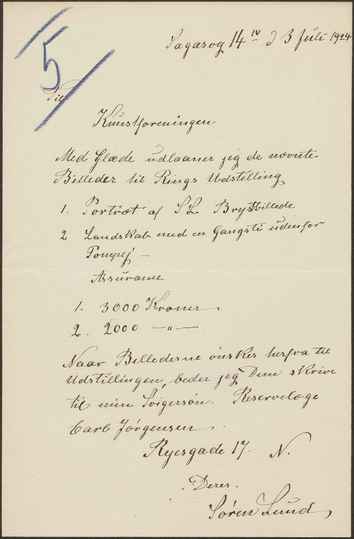 5
Fagasvej 14 IV d 3 Juli 1924
Til
Kunstforeningen
Med Glæde udlaaner jeg de nævnte
Billeder til Rings Udstilling
1. Portræt af S L Brystbillede
2 Landskab med en Gangsti udenfor
Pompej —
Assurance
1. 3000 Kroner.
2. 2000 —"—
Naar Billederne ønskes herfra til
Udstillingen, beder jeg Dem skrive
til min Svigersøn Reservelæge
Carl Jörgensen.
Ryesgade 17 N.
Deres.
Søren Lund,